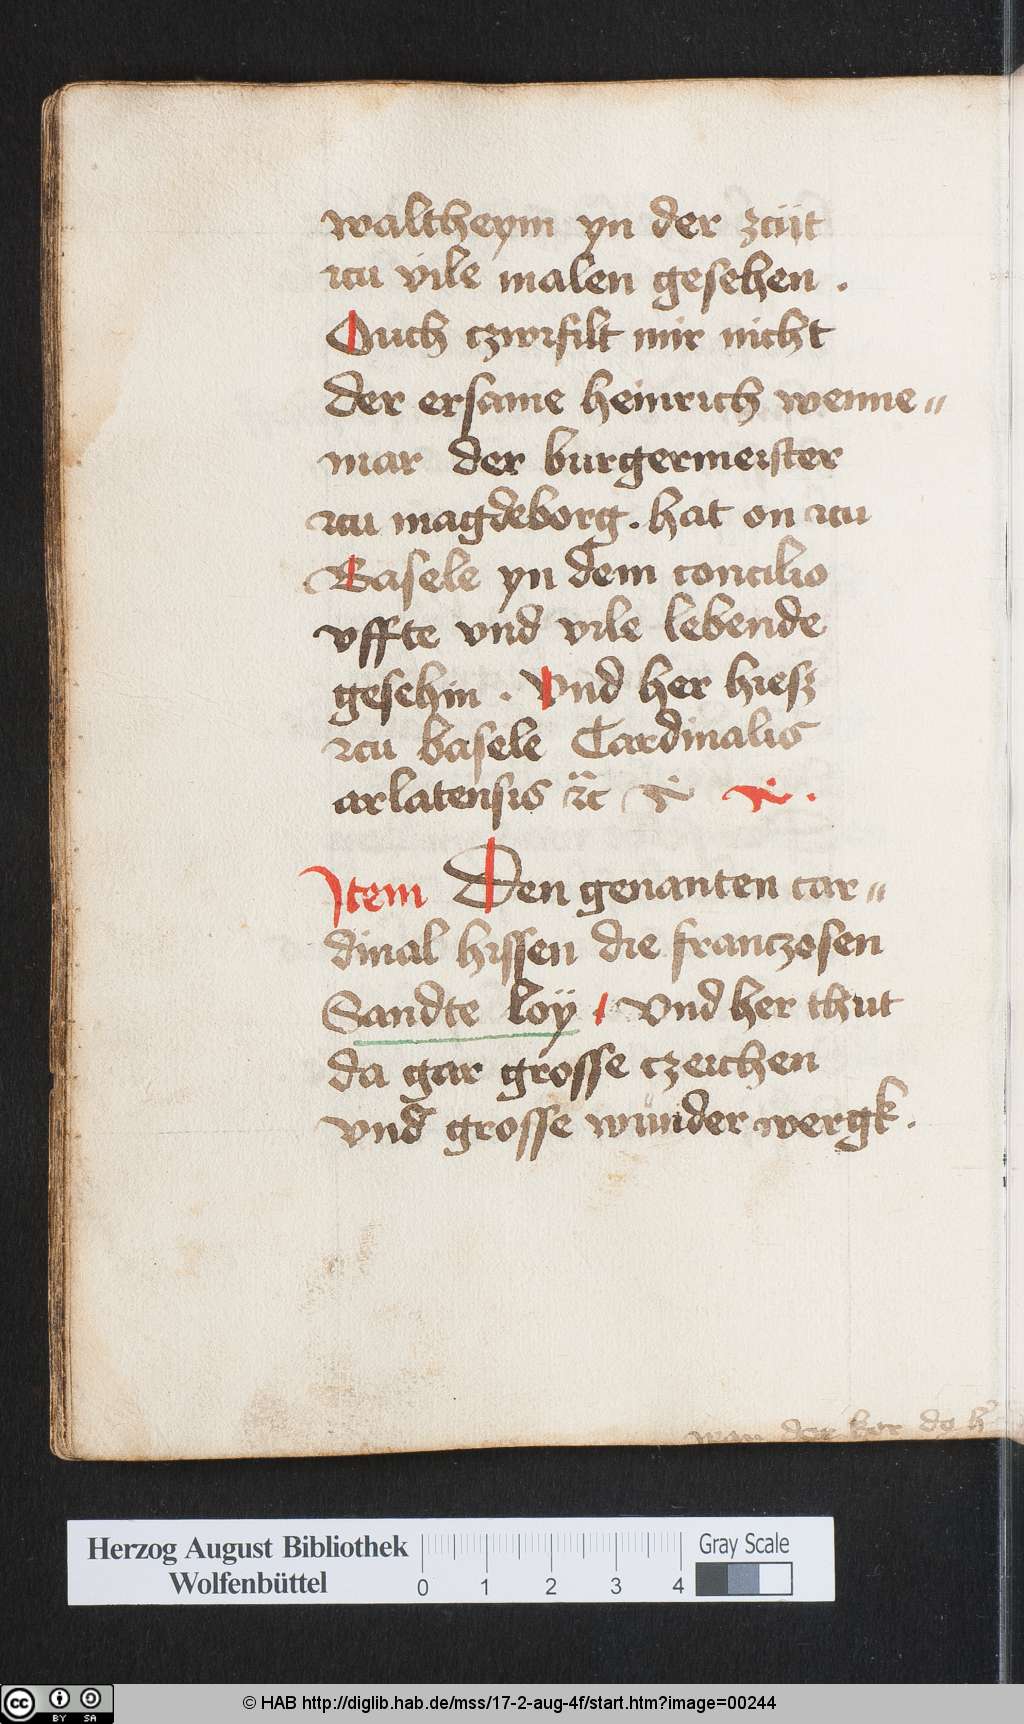 waltheym yn der zcijt
zcu vile malen gesehen .
Ouch czwifilt mir nicht
der ersame heinrich wenne„
mar der burgermeister
zcu magdeborg . hat on zcu
Basele yn dem concilio
vffte vnd vile lebende
gesehin . Vnd her hiesz
zcu basele Cardinalis
arlatensis ⁊c̃
Item Den genanten car„
dinal hissen die franczosen
Sandte loÿ . vnd her thut
da gar grosse czeichen
vnd grosse wunder wergk .
wan der kor do
Herzog August Bibliothek
Wolfenbüttel
0 1 2 3 4
Gray Scale
cc BY SA
© HAB http://diglib.hab.de/mss/17-2-aug-4f/start.htm?image=00244